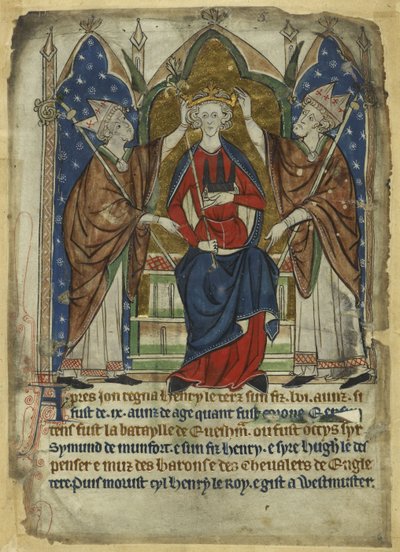 Apres ion regna Henry le terz sun fiz .lvi. aunz. si
fust de .ix. aunz de age quant fust corone. E en su
tens fust la bataylle de Euesham. ou fust occys syr
Symund de munfort. e sun fiz Henry. e syre Hugh le des
penser e muz des barons e des Chevalers de Engle
tere. Puis morust cyl Henry le Roy. e gist a Westmuster.